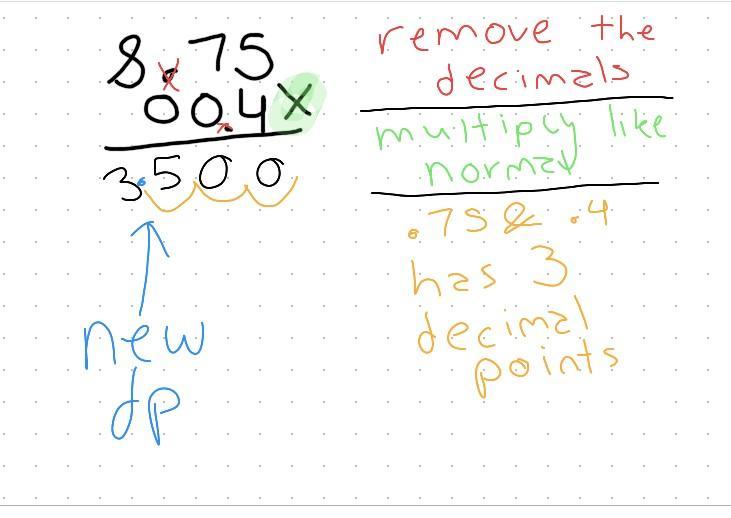 8.75
00.4 ×
3.500
new
dp
remove the
decimals
multiply like
normal
.75 & .4
has 3
decimal
points